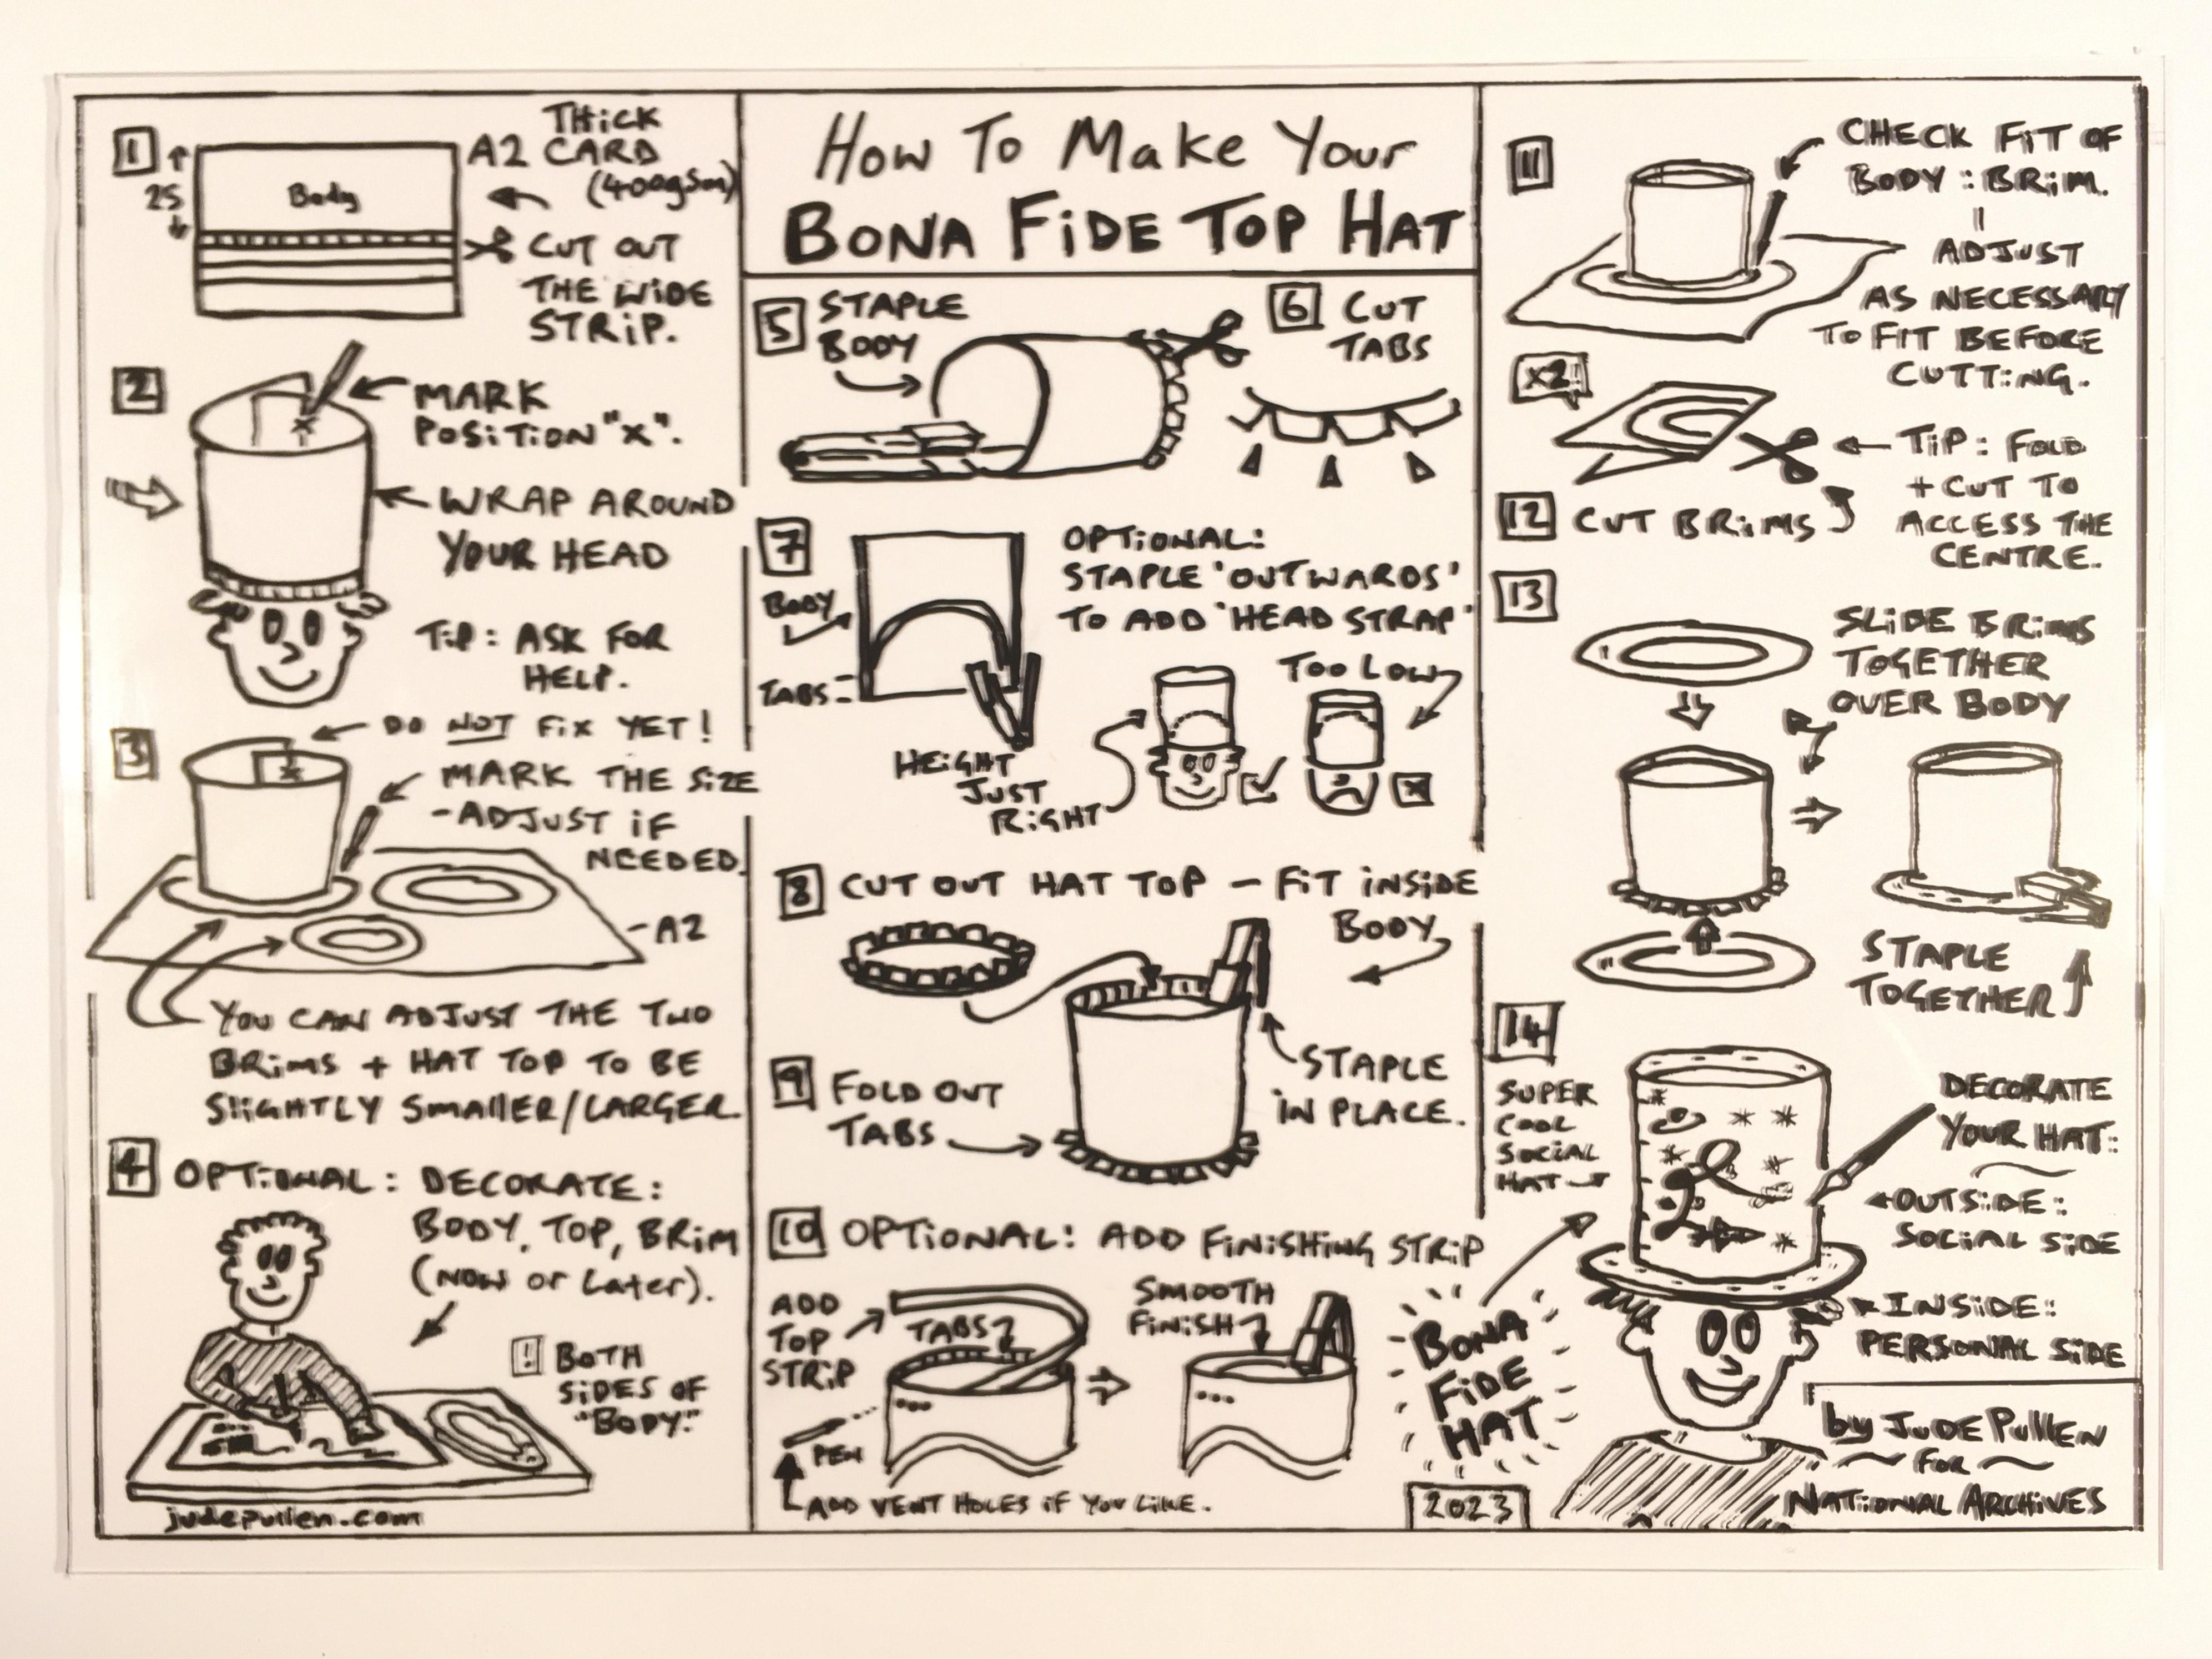 How To Make Your
BONA FIDE TOP HAT
1
25
Body
THICK
A2 CARD
(400gsm)
CUT OUT
THE WIDE
STRIP.
2
MARK
POSITION "X".
X
WRAP AROUND
YOUR HEAD
TIP: ASK FOR
HELP.
3
DO NOT FIX YET!
X
MARK THE SIZE
-ADJUST IF
NEEDED.
-A2
YOU CAN ADJUST THE TWO
BRIMS + HAT TOP TO BE
SLIGHTLY SMALLER/LARGER.
4
OPTIONAL: DECORATE:
BODY, TOP, BRIM
(NOW or Later).
! BOTH
SIDES OF
"BODY."
judepullen.com
5
STAPLE
BODY
6
CUT
TABS
7
BODY
TABS
OPTIONAL:
STAPLE 'OUTWARDS'
TO ADD 'HEAD STRAP'
TOO LOW
HEIGHT
JUST
RIGHT
8
CUT OUT HAT TOP - FIT INSIDE
BODY
STAPLE
IN PLACE.
9
FOLD OUT
TABS
10
OPTIONAL: ADD FINISHING STRIP
ADD
TOP
STRIP
TABS
SMOOTH
FINISH
PEN
ADD VENT HOLES IF YOU LIKE.
11
CHECK FIT OF
BODY :: BRIM.
ADJUST
AS NECESSARY
TO FIT BEFORE
CUTTING.
X2!
TIP: FOLD
+ CUT TO
ACCESS THE
CENTRE.
12
CUT BRIMS
13
SLIDE BRIMS
TOGETHER
OVER BODY
STAPLE
TOGETHER
14
SUPER
COOL
SOCIAL
HAT
DECORATE
YOUR HAT:
OUTSIDE:
SOCIAL SIDE
INSIDE:
PERSONAL SIDE
BONA
FIDE
HAT
2023
by JUDE PULLEN
FOR
NATIONAL ARCHIVES